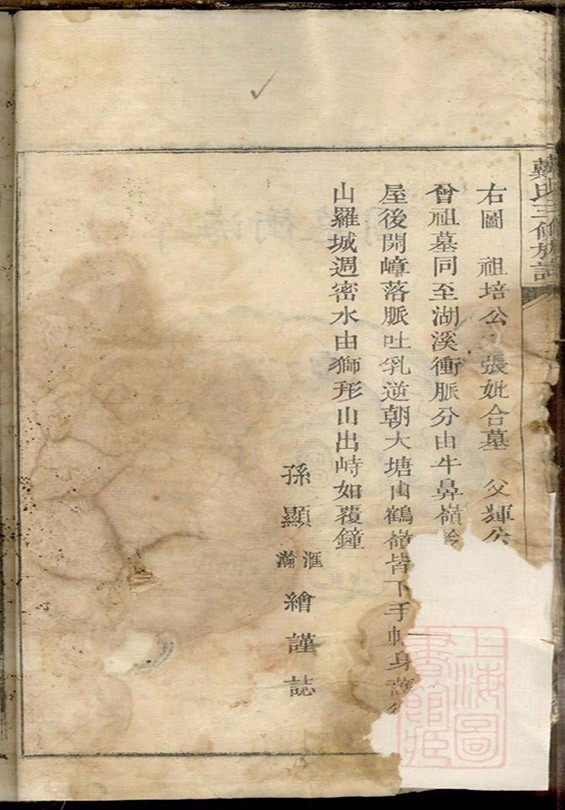 氏三修族譜
右圖 祖培公 張妣合墓 父輝公
曾祖墓同至湖溪衝脈分由牛鼻嶺
屋後開嶂落脈吐乳逆朝大塘由鶴嶺皆下手
山羅城週密水由獅形山出峙如覆鐘
孫顯滙瀚繪謹誌
上海圖書館